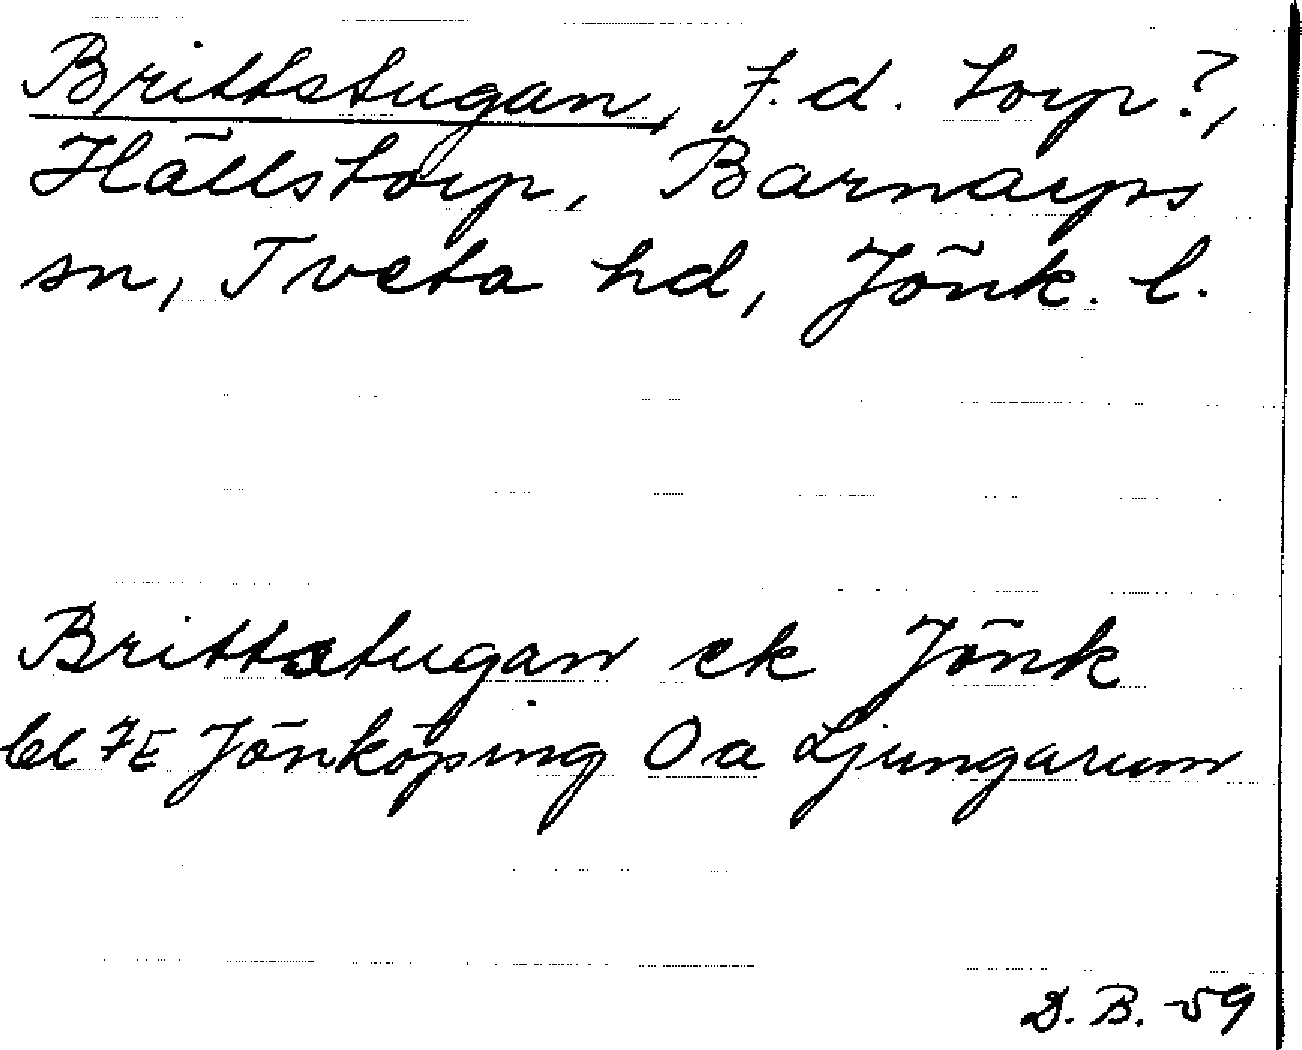 Brittstugan, f.d. torp?,
Hällstorp, Barnarps
sn, Tveta hd, Jönk. l.
Brittstugan ek Jönk
bl 7E Jönköping Oa Ljungarum
D.B. -59